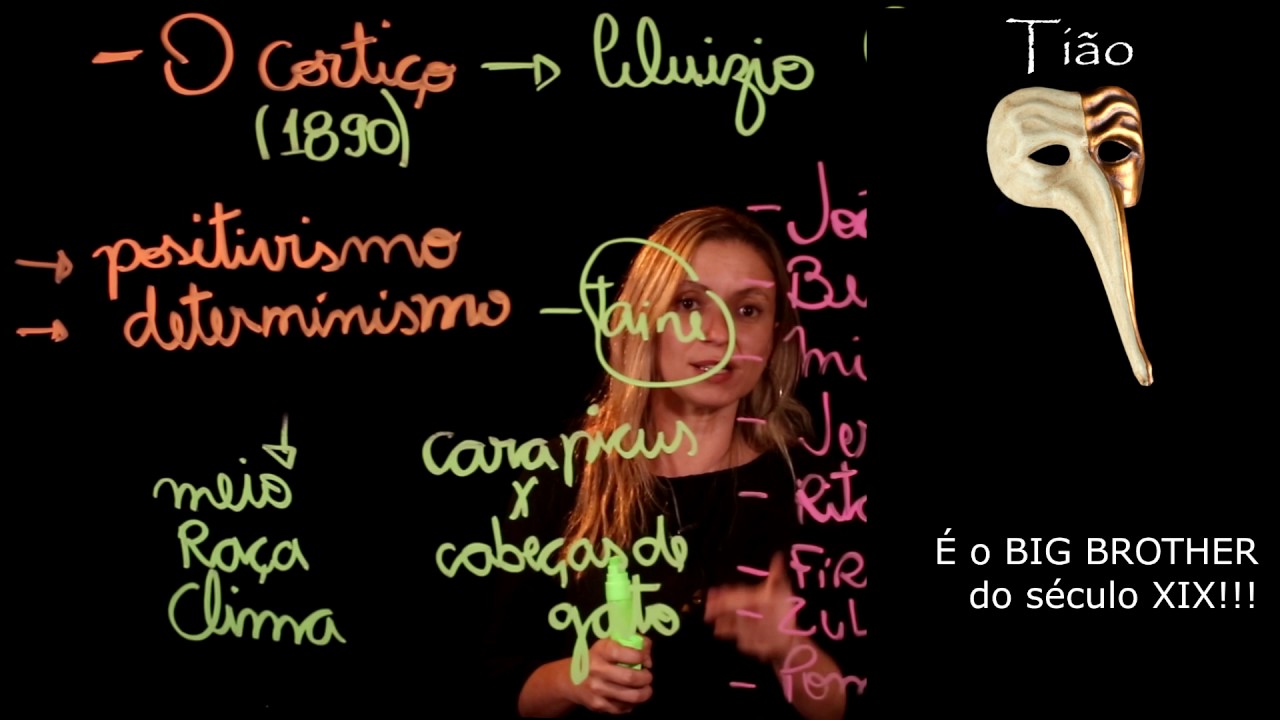 - O cortiço → Aluizio (
(1890)
→ positivismo
→ determinismo - Taine
↓
meio
Raça
Clima
carapicus
x
cabeças de
gato
- Joã
- Be
- mi
- Jer
- Rita
- FIR
- ZUL
- Pom
Tião
É o BIG BROTHER
do século XIX!!!